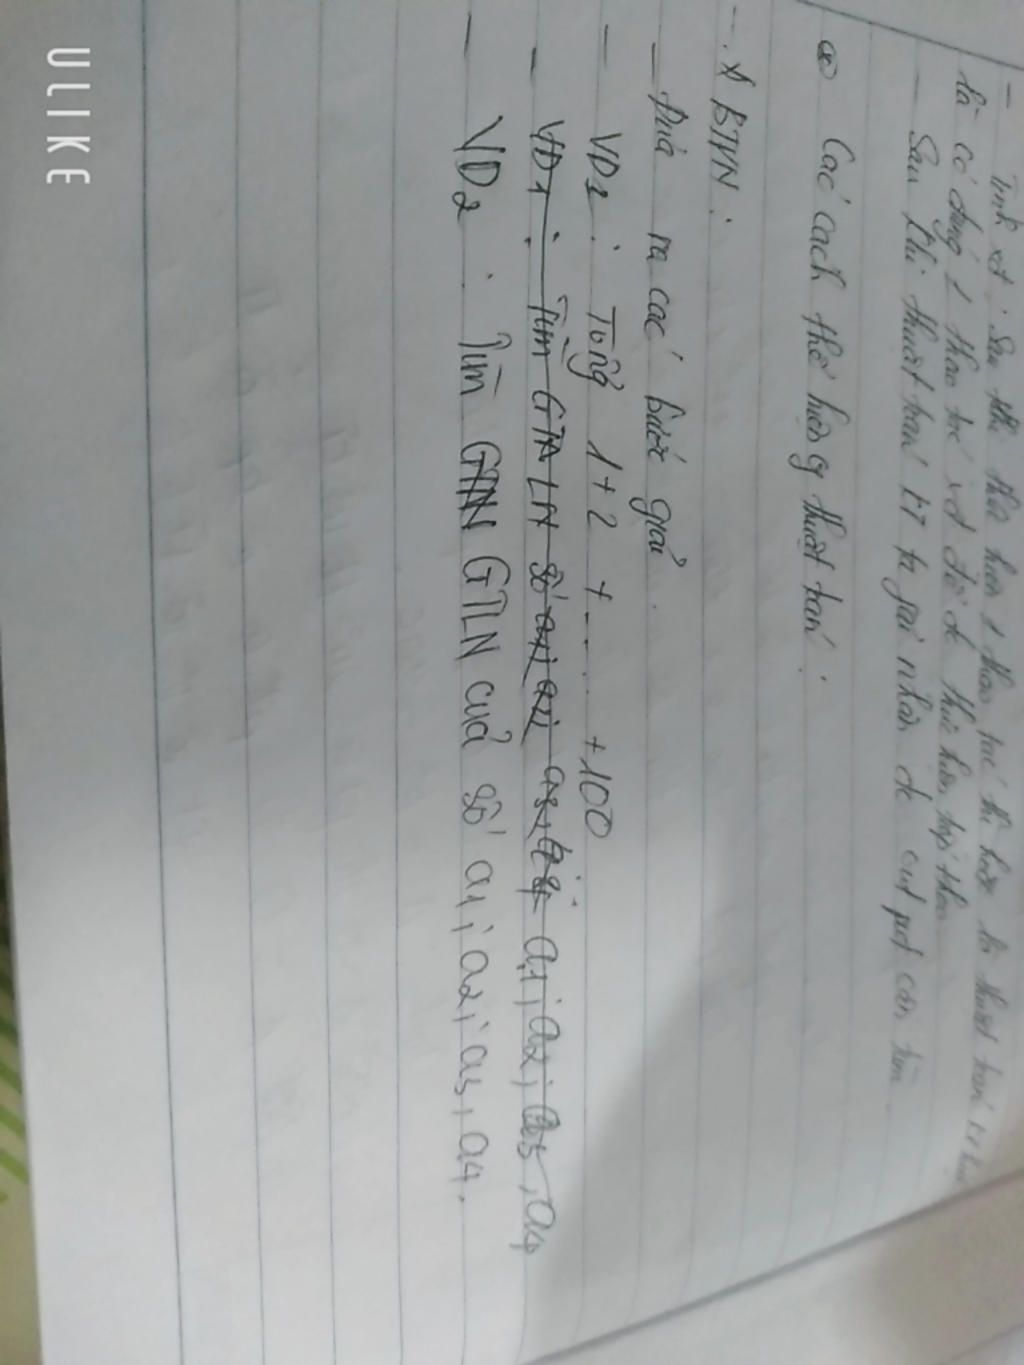 - Tính xđ: Sau khi thực hiện 1 thao tác thì hoặc là thuật toán kt hoặc
là có đúng 1 thao tác xđ để thực hiện tiếp theo
- Sau khi thuật toán KT ta phải nhận đc output cần tìm
⊛ Các cách thể hiện thuật toán:
- BTVN:
- Đưa ra các bước giải.
- VD1: Tổng 1+2 + ..... +100
- VD1: Tìm GTLN số a1; a2; a3, a4
- VD2: Tìm GTLN của số a1; a2; a3, a4.
ULIKE